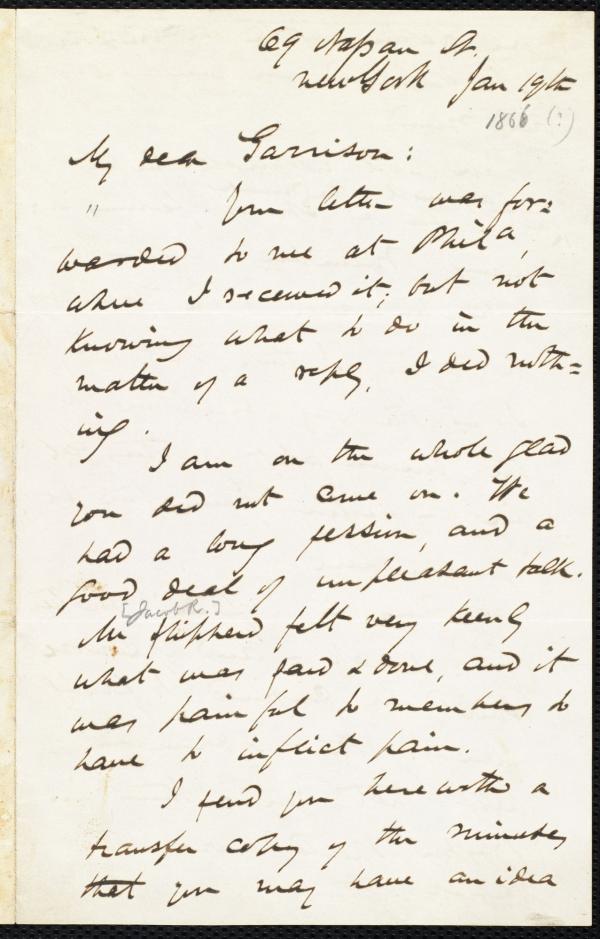 69 Nassau St.
New York Jan 19th
1866 (?)
My dear Garrison:
" Your letter was for=
warded to me at Phila,
where I received it; but not
knowing what to do in the
matter of a reply, I did noth=
ing.
I am on the whole glad
you did not come on. We
had a long session, and a
good deal of unpleasant talk.
[Jacob R.]
Mr Shipherd felt very keenly
what was said & done, and it
was painful to members to
have to inflict pain.
I send you herewith a
transfer copy of the minutes
that you may have an idea